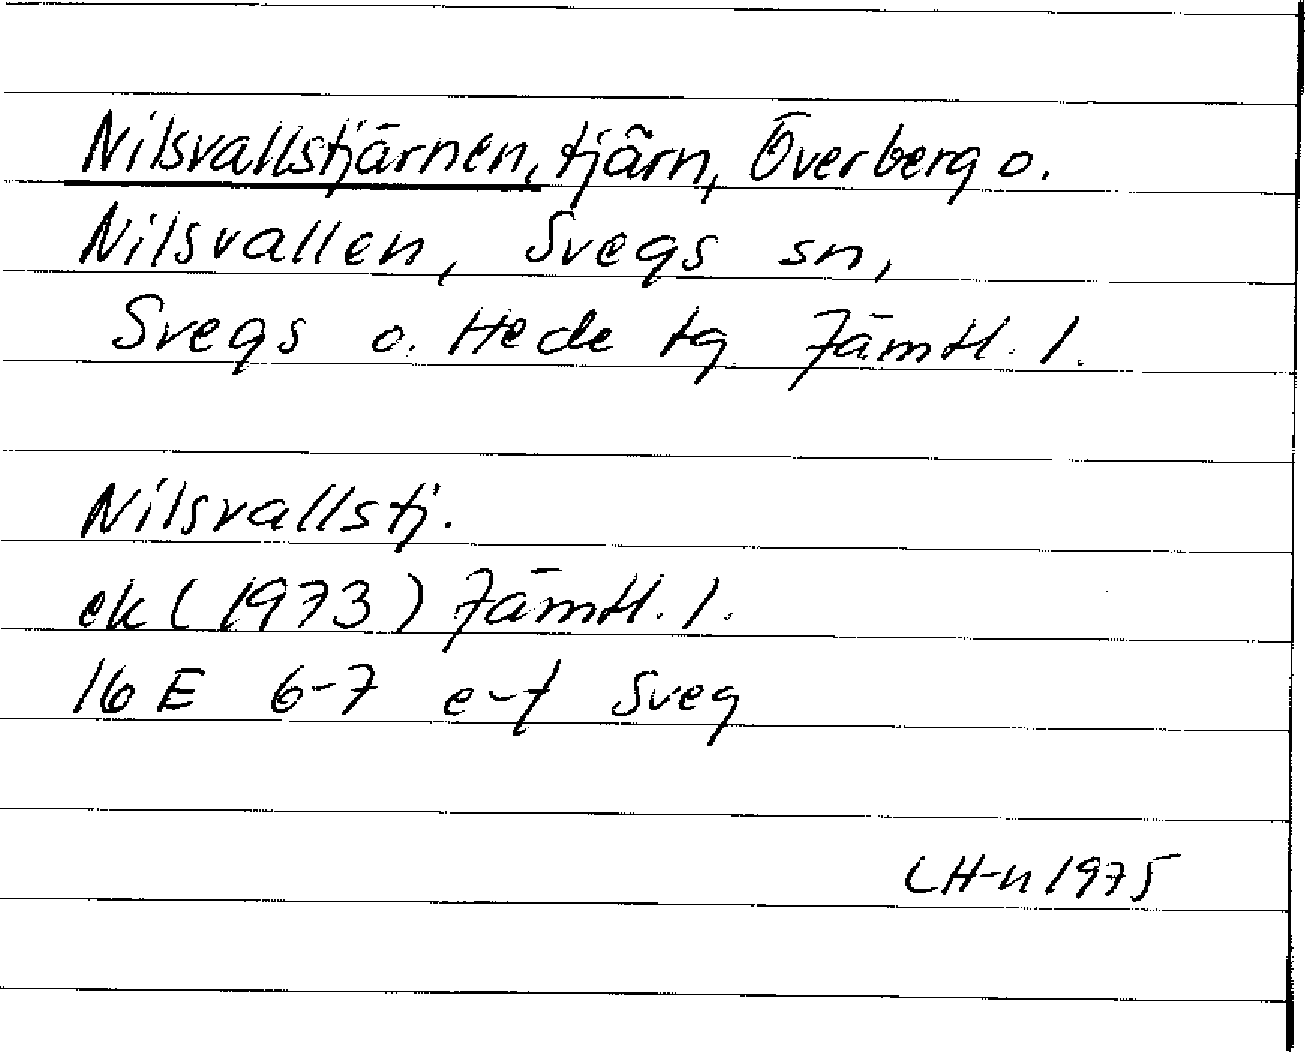 Nilsvallstjärnen, tjärn, Överberg o.
Nilsvallen, Svegs sn,
Svegs o. Hede tg Jämtl. l.
Nilsvallstj.
ek (1973) Jämtl. l.
16 E 6-7 e-f Sveg
LH-n 1975